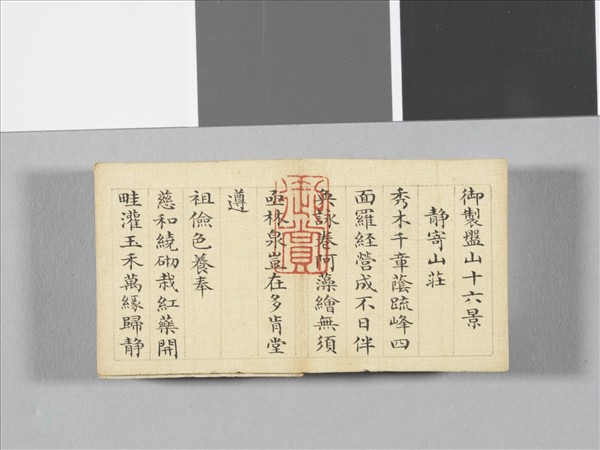 御製盤山十六景
静寄山莊
秀木千章蔭疏峰四
面羅經營成不日伴
奐詠卷阿藻繪無須
亟林泉豈在多肯堂
遵
祖儉色養奉
慈和繞砌栽紅藥開
畦灌玉禾萬緣歸静
御賞